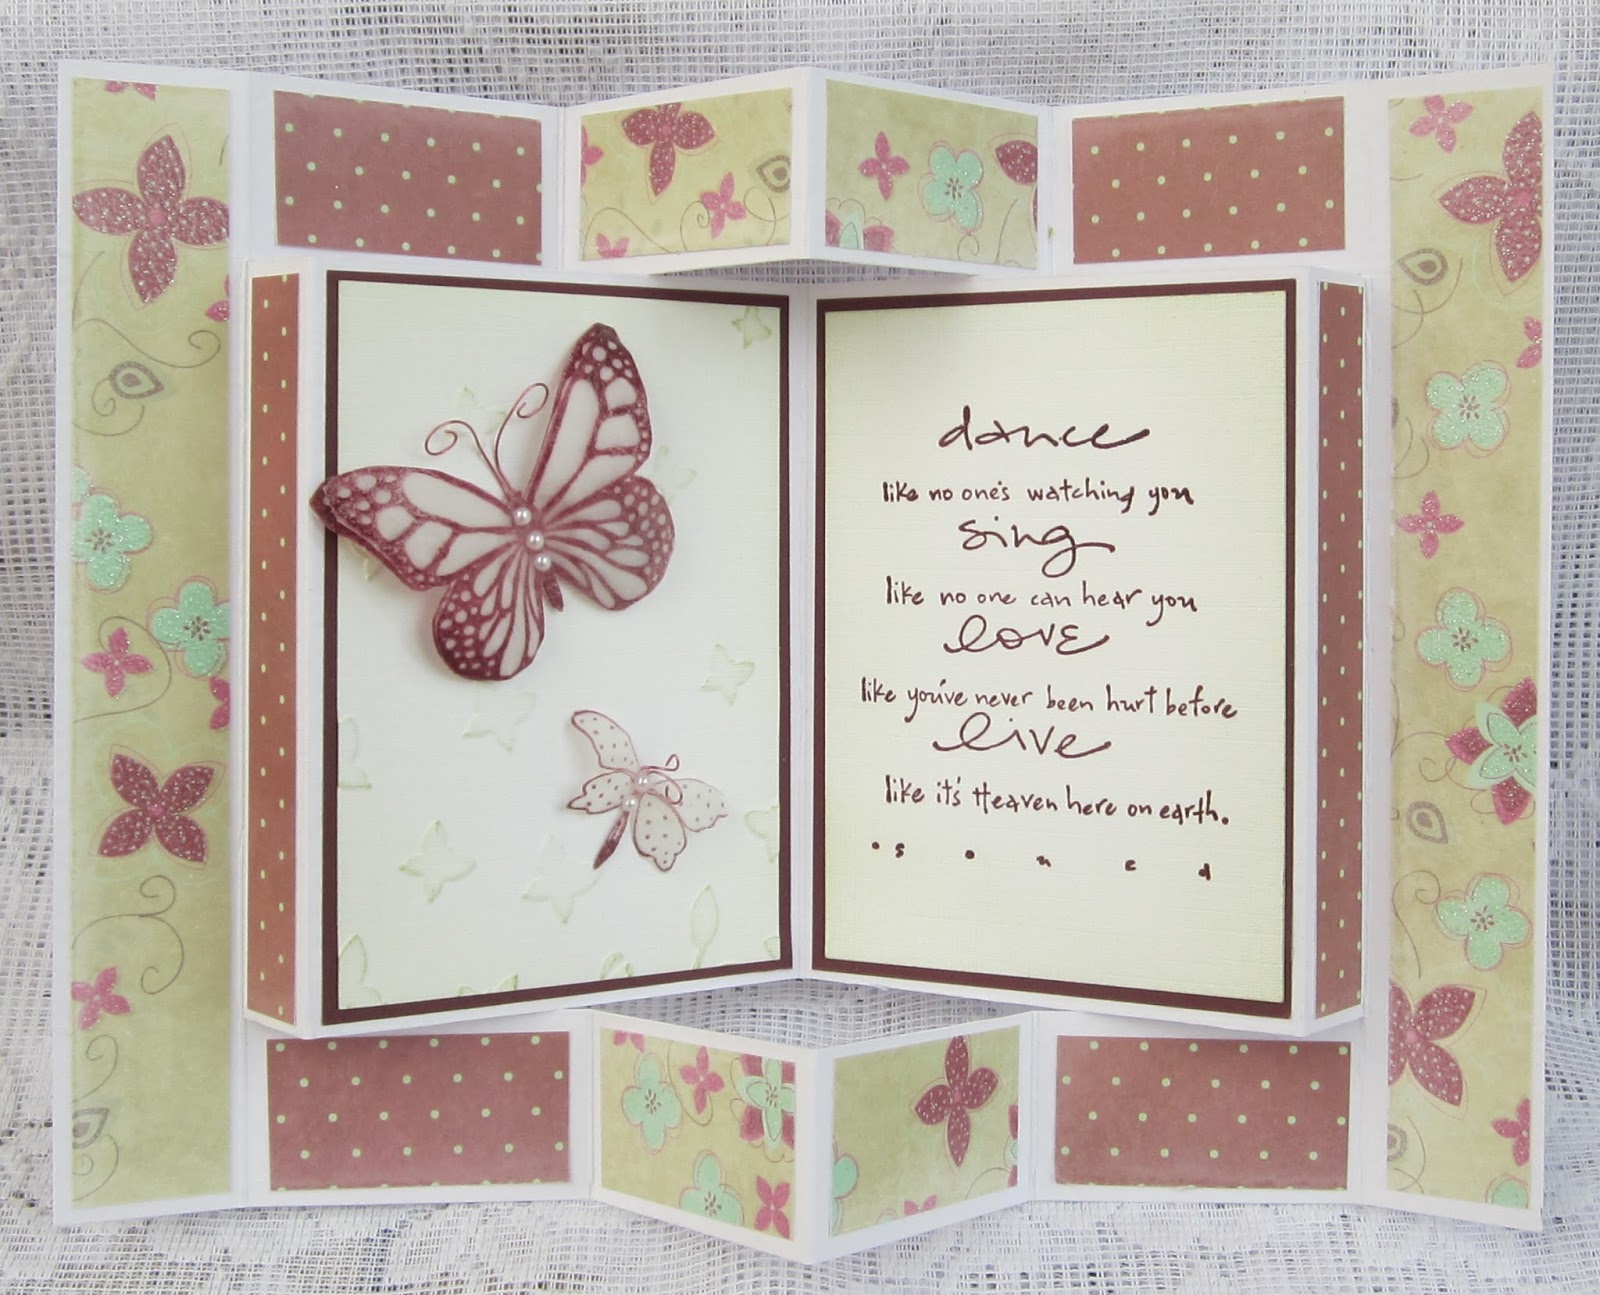 dance
like no one's watching you
sing
like no one can hear you
love
like you've never been hurt before
live
like it's Heaven here on earth.
• s o u e d